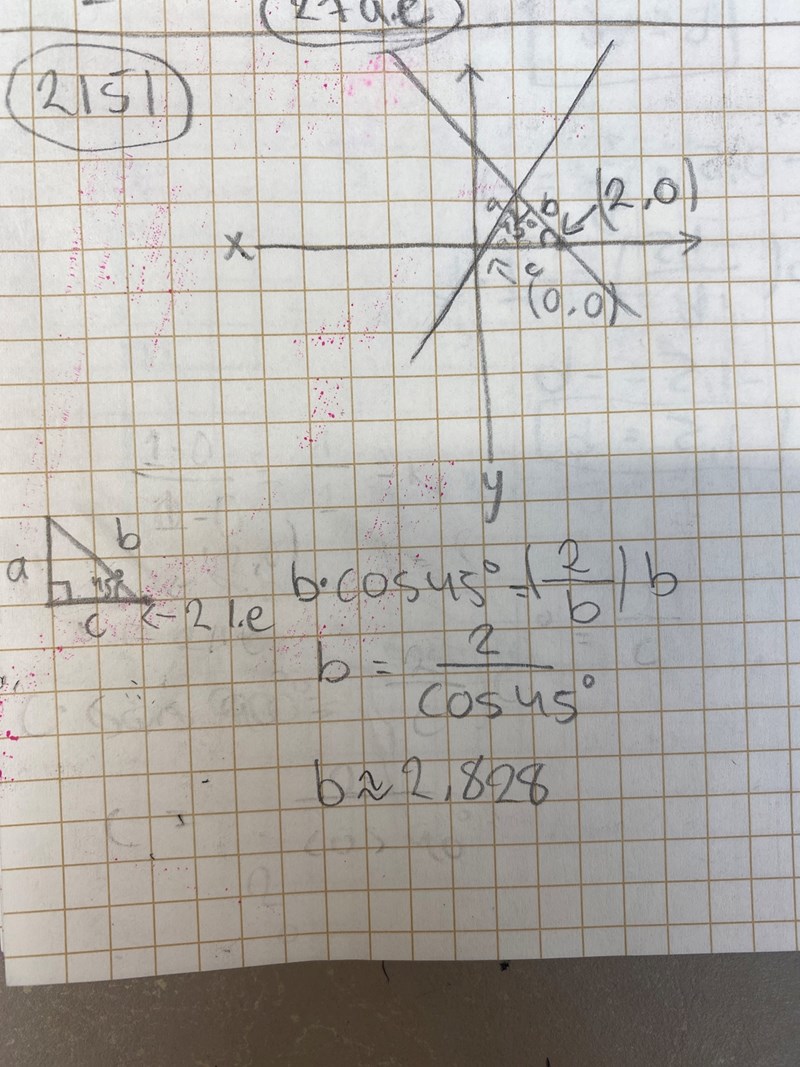 27 a.e
2151
a b (2,0)
45°
x
c
(0,0)
y
b
a 45°
c ← 2 l.e
b·cos45° = (2/b) b
b = 2/cos45°
b ≈ 2,828